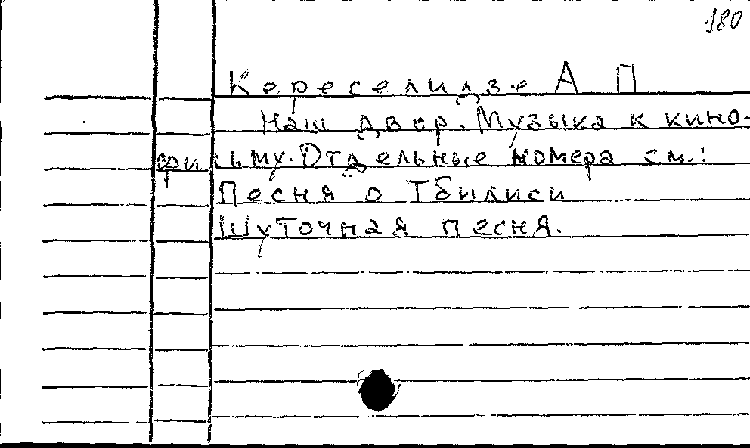 180
Кереселидзе А П
Наш двор. Музыка к кино-
фильму. Отдельные номера см.:
Песня о Тбилиси
Шуточная песня.